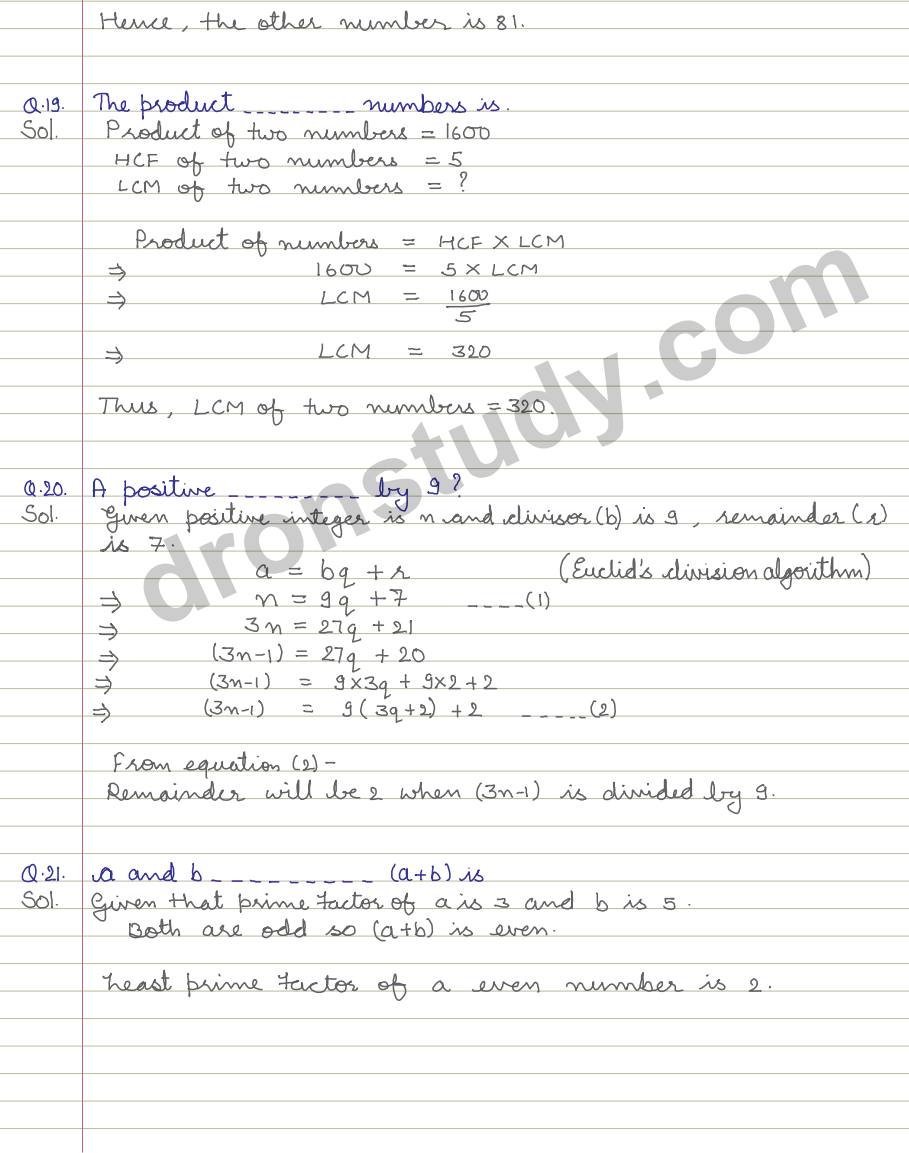 Hence, the other number is 81.
Q.19. The product _________ numbers is.
Sol. Product of two numbers = 1600
HCF of two numbers = 5
LCM of two numbers = ?
Product of numbers = HCF X LCM
⇒ 1600 = 5 X LCM
⇒ LCM = 1600/5
⇒ LCM = 320
Thus, LCM of two numbers = 320.
Q.20. A positive _________ by 9?
Sol. Given positive integer is n and divisor (b) is 9, remainder (r)
is 7.
a = bq + r (Euclid's division algorithm)
⇒ n = 9q + 7 ----(1)
⇒ 3n = 27q + 21
⇒ (3n-1) = 27q + 20
⇒ (3n-1) = 9×3q + 9×2+2
⇒ (3n-1) = 9(3q+2) + 2 -----(2)
From equation (2) -
Remainder will be 2 when (3n-1) is divided by 9.
Q.21. a and b __________ (a+b) is
Sol. Given that prime factor of a is 3 and b is 5.
Both are odd so (a+b) is even.
Least prime factor of a even number is 2.
dronstudy.com